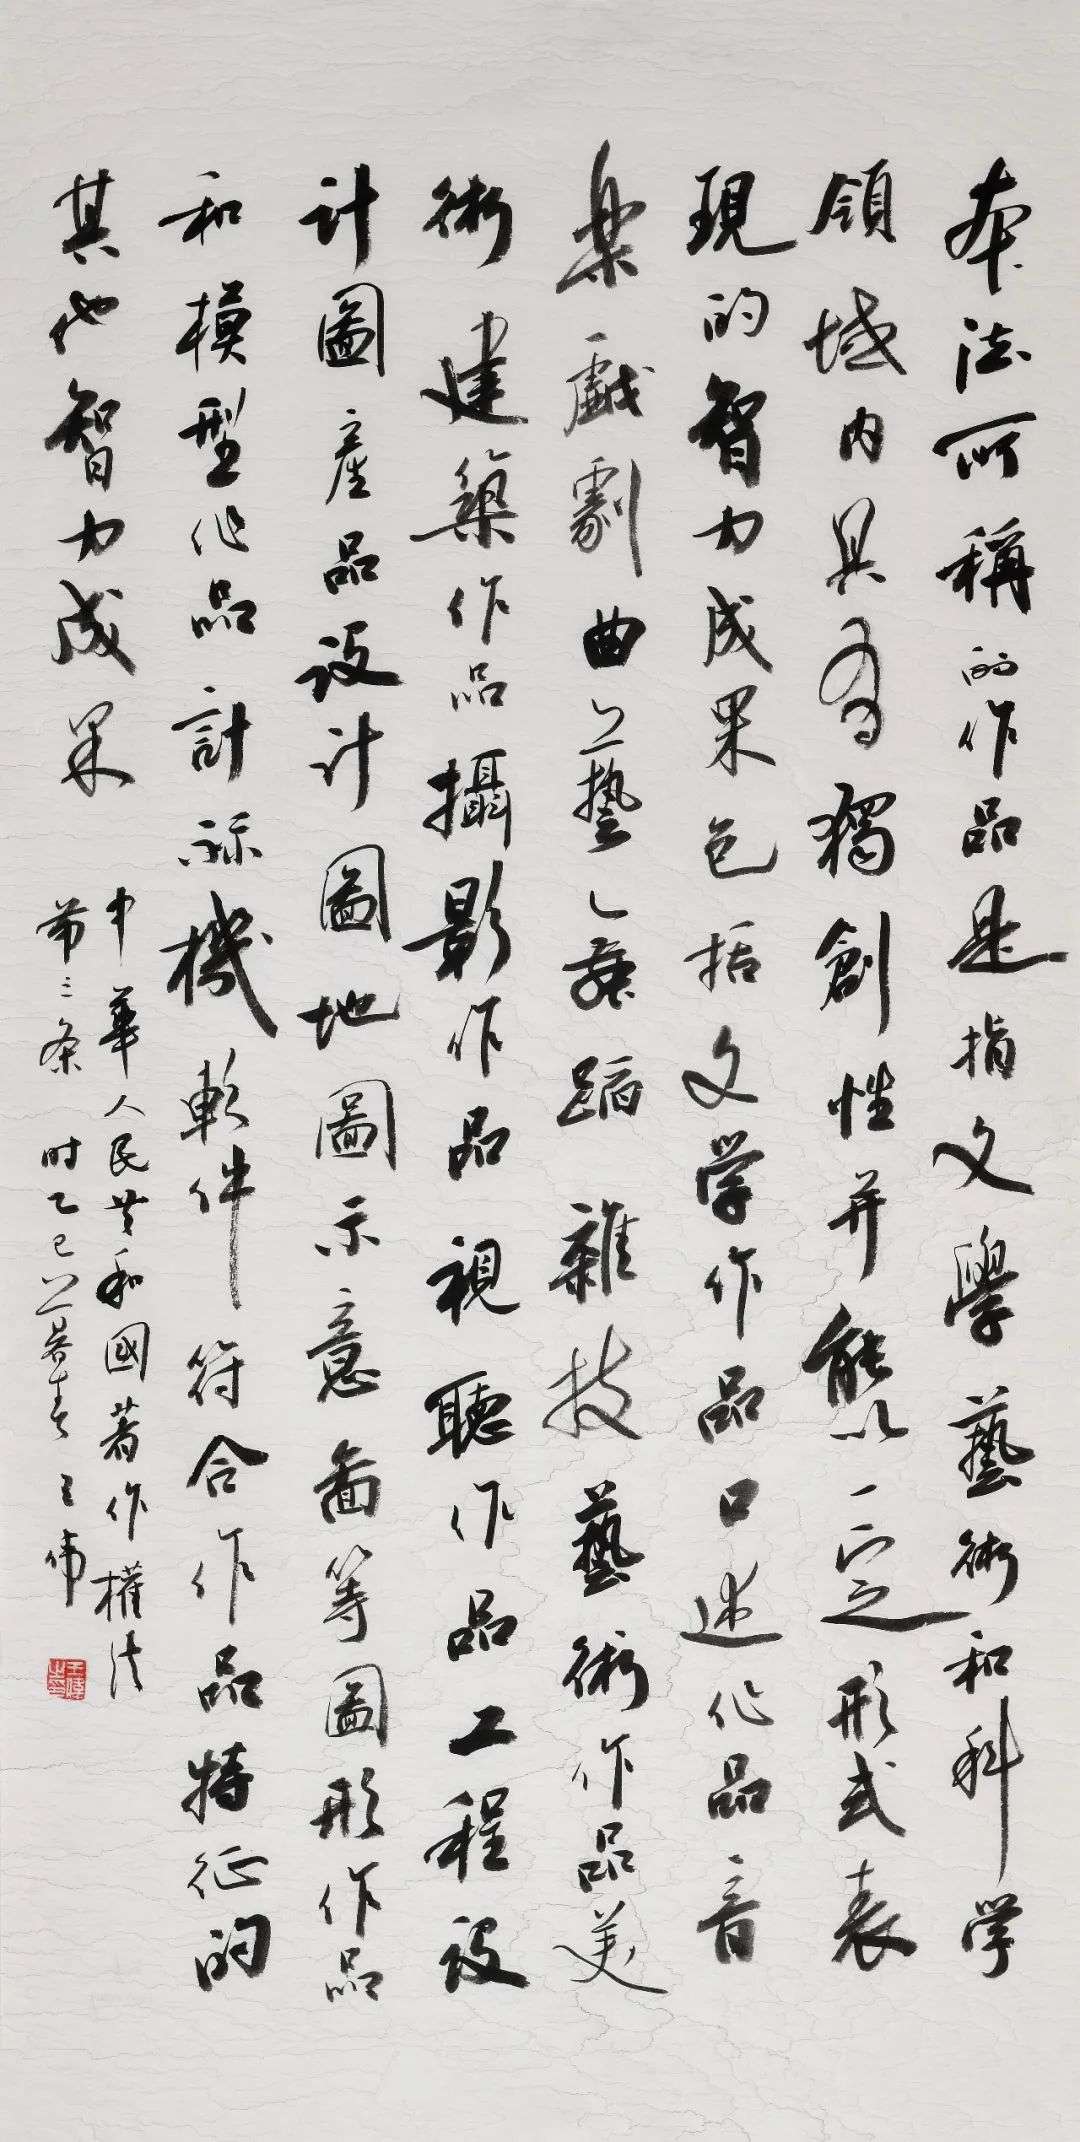 本法所稱的作品是指文學藝術和科学
領域内具有獨創性并能以一定形式表
現的智力成果包括文学作品口述作品音
樂戲劇曲藝舞蹈雜技藝術作品美
術建築作品攝影作品視聽作品工程设
计圖產品设计圖地圖示意啚等圖形作品
和模型作品計祘機軟件符合作品特征的
其他智力成果
中華人民共和國著作權法
第三条 时乙巳暮春王偉